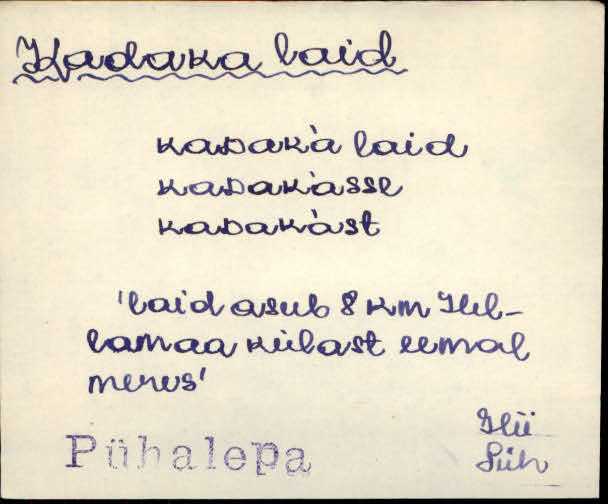 Kadaka laid
kaDak̀a laid
kaDak̀asse
kaDak̀ast
'laid asub 8 km Hel-
lamaa külast eemal
meres'
Pühalepa
Hii